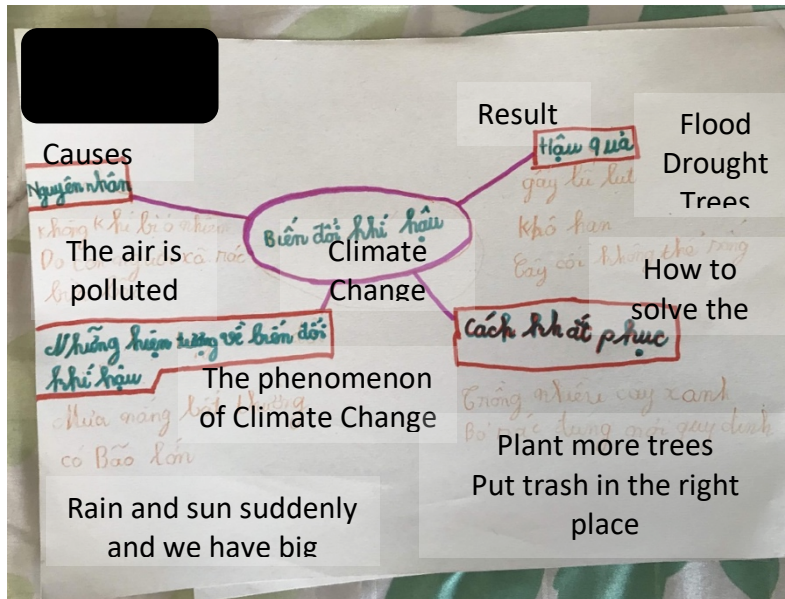 Causes
Nguyên nhân
không khí bị ô nhiễm
The air is
polluted
Result
Hậu quả
gây lũ lụt
khô hạn
Cây cối không thể sống
Flood
Drought
Trees
Biến đổi khí hậu
Climate
Change
How to
solve the
Cách khắt phục
Trồng nhiều cây xanh
Bỏ rác đúng nơi quy định
Plant more trees
Put trash in the right
place
Những hiện tượng về biến đổi
khí hậu
The phenomenon
of Climate Change
Mưa nắng bất thường
có Bão lớn
Rain and sun suddenly
and we have big